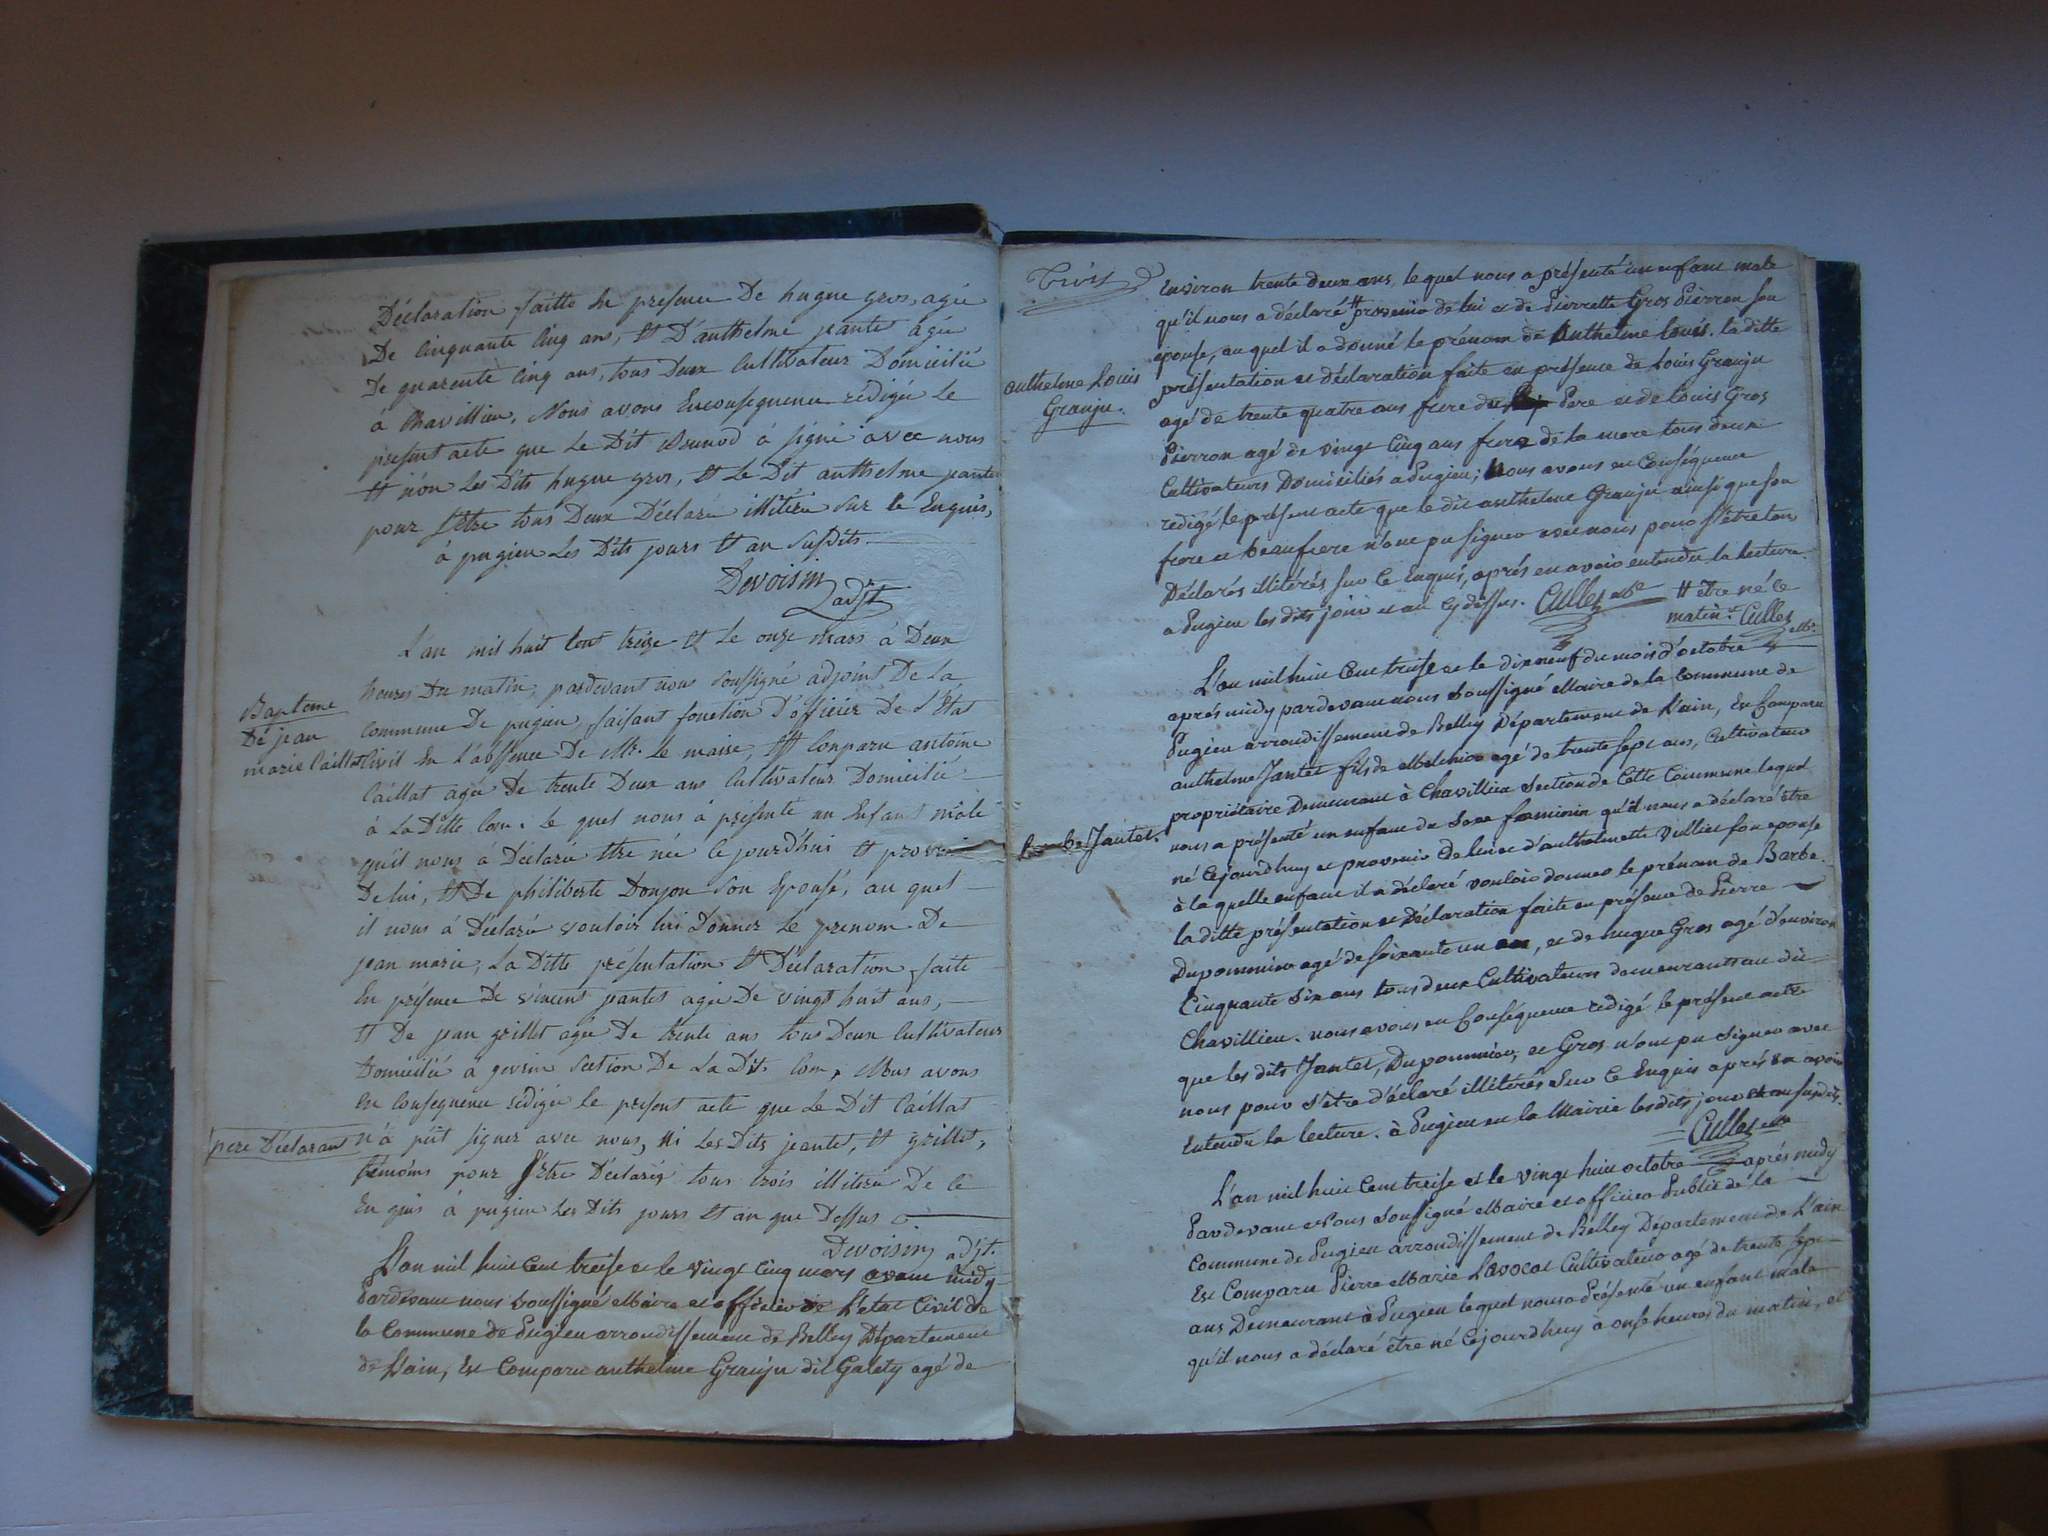 Déclaration faitte En presence De hugue gros, agée
De Cinquante Cinq ans, Et D'anthelme jantet agée
De quarente Cinq ans, tous Deux Cultivateur Domicilié
à Chavillieu, Nous avons Enconsequence rédigée Le
present acte que Le Dit Brunod à signé avec nous
Et n'on Les Dits hugue gros, Et Le Dit anthelme jantet
pour S'être tous Deux Déclaré illitéré Sur le Enquis,
à pugieu Les Dits jours Et an Susdits.
Devoisin
adjt
L'an mil huit Cent treize Et Le onze mars à Deux
heures Du matin, pardevant nous Soussigné adjoint De La
Commune De pugieu, faisant fonction D'officier De L'Etat
Baptême
De jean
marie Caillat
Civil En L'abssence De Mr. Le maire, Est Conparu antoine
Caillat agée De trente Deux ans Cultivateur Domicilié
à La Ditte Com. le quel nous à présenté un Enfant mâle
qu'il nous à Déclarée Etre née Cejourd'hui Et provenir
De lui, Et De philiberte Donjon Son Epouse, au quel
il nous à Déclarée vouloir lui Donner Le prenom De
jean marie, La Ditte présentation Et Déclaration faite
En présence De vincent jantet agée De vingt huit ans,
Et De jean grillet agée De trente ans tous Deux Cultivateur
Domicilié a gevrin Section De La Dit. Com, Nous avons
En Consequence rédigée le present acte que Le Dit Caillat
pere Déclarant
n'à pût signer avec nous, Ni Les Dits jeantet, Et grillet,
témoins pour S'être Déclarés tous trois illitéré De Ce
En quis à pugieu Les Dits jours Et an que Dessus
Devoisin adjt.
L'an mil huit Cent treise et le vingt cinq mars avant midy
Pardevant nous soussigné Maire et officier de l'etat Civil de
la Commune de Pugieu arrondissement de Belley Département
de l'ain, Est Comparu anthelme Granju dit Galety agé de
Trois
Environ trente deux ans, lequel nous a présenté un enfant male
qu'il nous a déclaré # provenir de lui et de Pierrette Gros Pierron son
epouse, au quel il a donné le prénom de Anthelme Louis. la ditte
anthelme Louis
Granju.
présentation et déclaration faite en présence de Louis Granju
agé de trente quatre ans frere du Pere et de Louis Gros
Pierron agé de vingt Cinq ans frere de la mere tous deux
Cultivateurs Domiciliés a Pugieu; Nous avons en Conséquence
redigé le présent acte que le dit anthelme Granju ainsi que son
frere et beaufrere n'ont pu signer avec nous pour s'être tous
Déclarés illitérés sur ce Enquis, après en avoir entendu la lecture.
a Pugieu les dits jour et an cy dessus. Cullet Me # être né ce
matin. Cullet Me.
L'an mil huit Cent treise et le dix neuf du mois d'octobre
après midy pardevant nous Soussigné Maire de la Commune de
Pugieu arrondissement de Belley Département de L'ain, Est Comparu
anthelme Jantet fils de Melchior agé de trente sept ans, Cultivateur
propriétaire Demeurant à Chavillieu Section de Cette Commune lequel
Barbe Jantet.
nous a présenté un enfant du Sexe foeminin qu'il nous a déclaré être
né Cejourdhuy et provenir de lui et d'anthelmette Vulliet son epouse
à laquelle enfant il a déclaré vouloir donner le prénom de Barbe.
la ditte présentation et Déclaration faite en présence de Pierre
Dupommier agé de soixante un, et de hugue Gros agé d'environ
Cinquante Six ans tous deux Cultivateurs demeurants au dit
Chavillieu. nous avons en Conséquence redigé le présent acte
que les dits Jantet, Dupommier, et Gros n'ont pu signer avec
nous pour s'être déclaré illitérés Sur Ce Enquis après en avoir
Entendu la lecture. à Pugieu en la Mairie lesdits jour et an susdits.
Cullet Me
L'an mil huit Cent treise et le vingt huit octobre après midy
Pardevant Nous Soussigné Maire et officier Public de la
Commune de Pugieu arrondissement de Belley Département de L'ain
Est Comparu Pierre Marie Lavocat Cultivateur agé de trente sept
ans Demeurant à Pugieu lequel nous a Présenté un enfant male
qu'il nous a déclaré être né Cejourdhuy à onse heures du matin, et